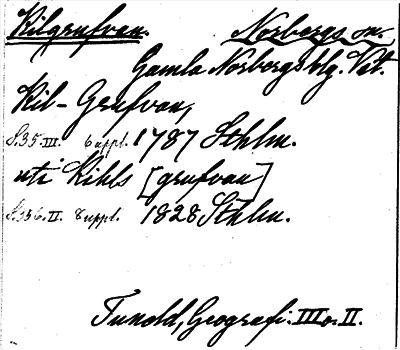 Kilgrufvan. Norbergs sn.,
Gamla Norbergs blg. Vstm.
Kil-Grufvan,
S.35.III. 6 uppl. 1787 Sthlm.
uti Kihls [grufvan]
S.356.II. 8 uppl. 1828 Sthlm.
Tuneld, Geografi. III o. II.